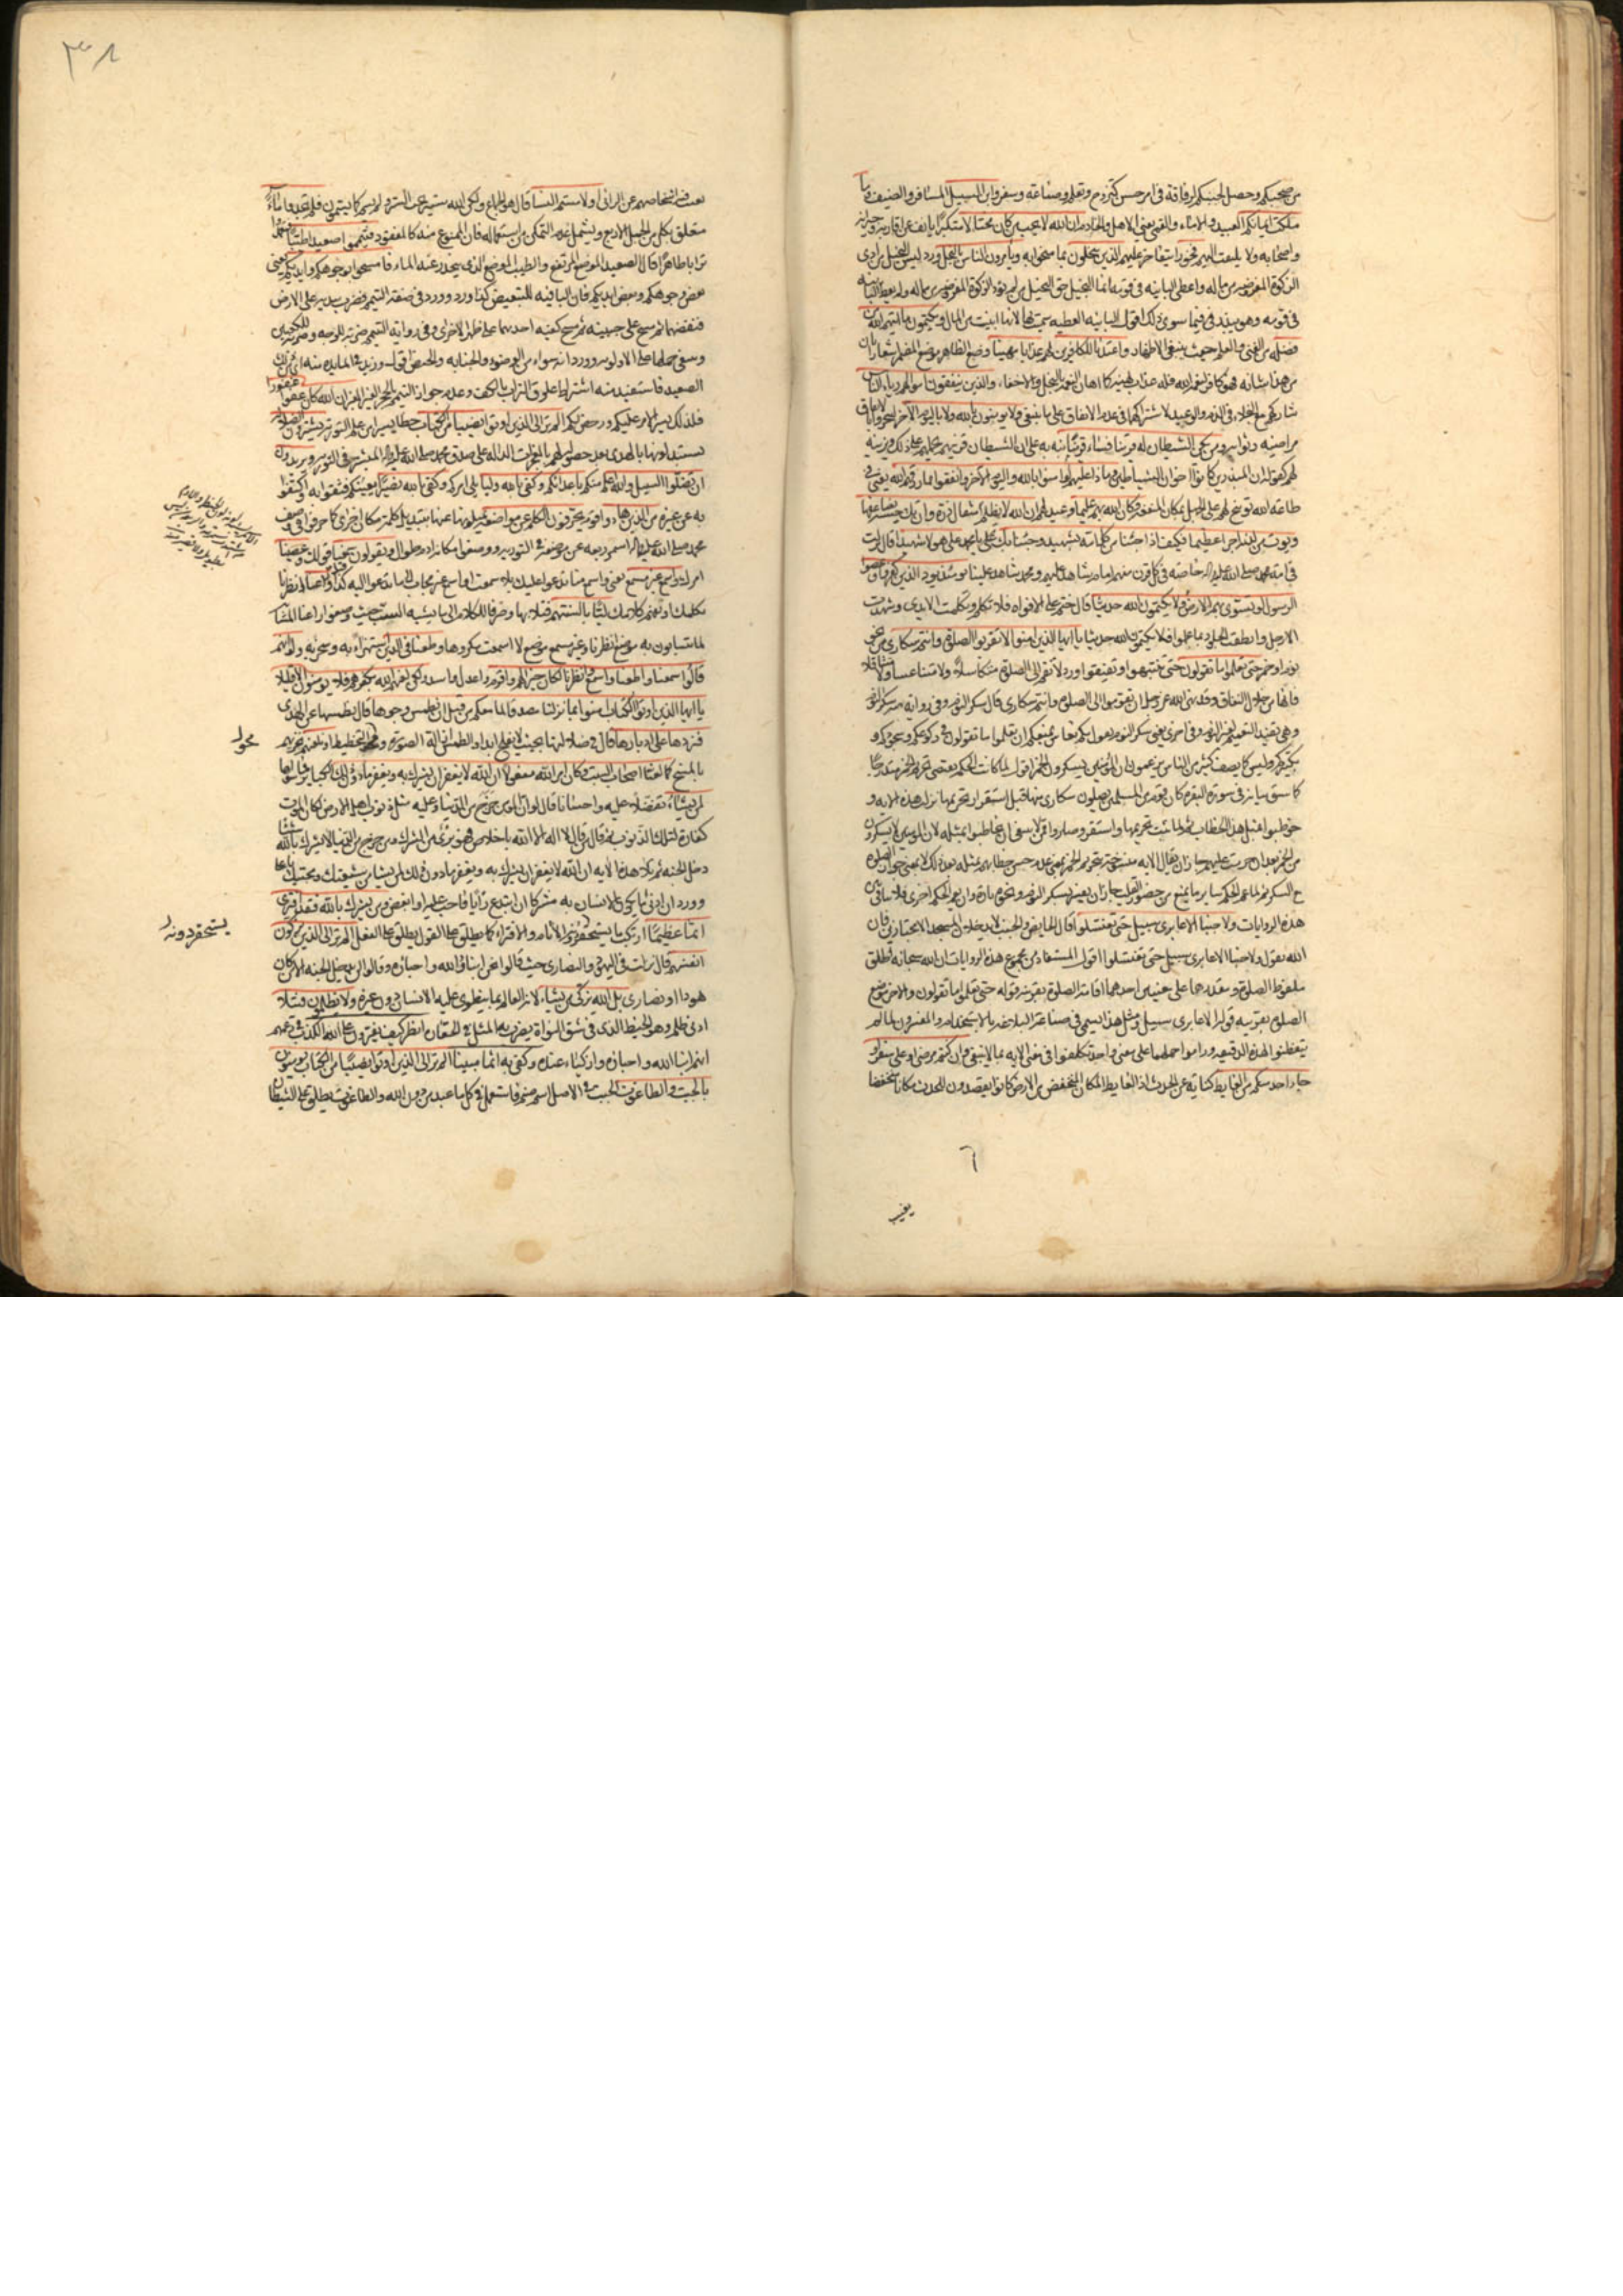 من صحبكم وحصل لجنبكم لرفاقة في امر حسن كتزوج وتعلم وصناعة وسفر وابن السبيل المسافر والضيف وما
ملكت ايمانكم العبيد والاماء والقمي يعني الاهل والخادم ان الله لا يحب من كان مختالا متكبرا يانف عن اقاربه وجيرانه
واصحابه ولا يلتفت اليهم فخورا يتفاخر عليهم الذين يبخلون بما منحوا به ويأمرون الناس بالبخل ورد ليس البخيل من ادى
الزكوة المفروضة من ماله واعطى البائنة في قومه انما البخيل حق البخيل من لم يؤد الزكوة المفروضة من ماله ولم يعط البائنة
في قومه وهو يبذر فيما سوى ذلك اقول البائنة العطية سميت بها لانها ابينت من المال ويكتمون ما اتيهم الله من
فضله من الغنى والعلم حيث ينبغي الاظهار واعتدنا للكافرين لهم عذابا مهينا وضع الظاهر موضع المضمر اشعارا بان
من هذا شانه فهو كافر لنعمة الله فله عذاب يهينه كما اهان النعمة بالبخل والاخفاء والذين ينفقون اموالهم رياء الناس
شاركهم مع البخلاء في الذم والوعيد لاشتراكهما في عدم الانفاق على ما ينبغي ولا يؤمنون بالله ولا باليوم الاخر ليتحروا بالانفاق
مراضيه وثوابه ومن يكن الشيطان له قرينا فساء قرينا نبه به على ان الشيطان قرينهم يحملهم على ذلك ويزينه
لهم كقوله ان المبذرين كانوا اخوان الشياطين وماذا عليهم لو امنوا بالله واليوم الاخر وانفقوا مما رزقهم الله يعني في
طاعة الله توبيخ لهم على الجهل بمكان المنفعة وكان الله بهم عليما وعيد لهم ان الله لا يظلم مثقال ذرة وان تك حسنة يضاعفها
ويؤت من لدنه اجرا عظيما فكيف اذا جئنا من كل امة بشهيد وجئنا بك على هؤلاء شهيدا قال نزلت
في امة محمد صلى الله عليه واله خاصة في كل قرن منهم امام منا شاهد عليهم ومحمد شاهد علينا يومئذ يود الذين كفروا وعصوا
الرسول لو تسوى بهم الارض ولا يكتمون الله حديثا قال ختم على الافواه فلا تكلم وتكلمت الايدي وشهدت
الارجل وانطقت الجلود بما عملوا فلا يكتمون الله حديثا يا ايها الذين امنوا لا تقربوا الصلوة وانتم سكارى من نحو
نوم او خمر حتى تعلموا ما تقولون حتى تنتبهوا وتفيقوا ورد لا تقم الى الصلوة متكاسلا ولا متناعسا ولا متثاقلا
فانها من خلال النفاق وقد نهى الله عز وجل ان تقوموا الى الصلوة وانتم سكارى قال سكر النوم وفي رواية منه سكر النوم
وهي تفيد التعميم لغير النوم وفي اخرى يعني سكر النوم يقول بكم نعاس يمنعكم ان تعلموا ما تقولون في ركوعكم وسجودكم و
تكبيركم وليس كما يصف كثير من الناس يزعمون ان المؤمنين يسكرون من الخمر اقول لما كانت الحكمة تقتضي تحريم الخمر متدرجا
كما سبق بيانه في سورة البقرة كان قوم من المسلمين يصلون سكارى منها قبل استقرار تحريمها نزلت هذه الاية و
خوطبوا بمثل هذا الخطاب ثم لما ثبت تحريمها واستقر وصاروا ممن لا ينبغي ان يخاطبوا بمثله لان المؤمنين لا يسكرون
من الخمر بعد ان حرمت عليهم جاز ان يقال الاية منسوخة بتحريم الخمر بمعنى عدم حسن خطابهم بمثله بعد ذلك لا بمعنى جواز الصلوة
مع السكر ثم لما عم الحكم سائر ما يمنع من حضور القلب جاز ان يفسر بسكر النوم ونحوه تارة وان يعم الحكم اخرى فلا تنافي بين
هذه الروايات ولا جنبا الا عابري سبيل حتى تغتسلوا قال الحايض والجنب لا يدخلان المسجد الا مجتازين فان
الله يقول ولا جنبا الا عابري سبيل حتى تغتسلوا اقول المستفاد من مجموع هذه الروايات ان الله سبحانه اطلق
ملفوظ الصلوة ومقدرها على معنيين احدهما اقامة الصلوة بقرينة قوله حتى تعلموا ما تقولون والاخر موضع
الصلوة بقرينة قوله الا عابري سبيل ومثل هذا يسمى في صناعة البلاغة بالاستخدام والمفسرون لما لم
يتفطنوا لهذه الدقيقة وراموا حملها على معنى واحد تكلفوا في معنى الاية بما لا ينبغي وان كنتم مرضى او على سفر او
جاء احد منكم من الغايط كناية عن الحدث اذ الغايط المكان المنخفض من الارض كانوا يقصدون للحدث مكانا منخفضا
يغيب
٣٨
تغيب فيه اشخاصهم عن الرائي او لامستم النساء قال هو الجماع ولكن الله ستير يحب الستر ولم يسم كما تسمون فلم تجدوا ماء
متعلق بكل من الجمل الاربع ويشمل عدم التمكن من استعماله فان الممنوع منه كالمفقود فتيمموا صعيدا طيبا فتعمدوا
ترابا طاهرا قال الصعيد الموضع المرتفع والطيب الموضع الذي ينحدر عنه الماء فامسحوا بوجوهكم وايديكم يعني
بعض وجوهكم وبعض ايديكم فان الباء فيه للتبعيض كذا ورد وورد في صفة التيمم فضرب بيديه على الارض
فنفضهما ثم مسح على جبينه ثم مسح كفيه احديهما على ظهر الاخرى وفي رواية التيمم ضربة للوجه وضربة للكفين
الصعيد فاستفيد منه اشتراط علوق التراب بالكف وعدم جواز التيمم بالحجر الغير المغبر ان الله كان عفوا غفورا
فلذلك يسر الامر عليكم ورخص لكم الم تر الى الذين اوتوا نصيبا من الكتاب حظا يسيرا من علم التورية يشترون الضلالة
يستبدلونها بالهدى بعد حصوله لهم بالمعجزات الدالة على صدق محمد صلى الله عليه واله المبشر به في التورية ويريدون
ان تضلوا السبيل والله اعلم منكم باعدائكم وكفى بالله وليا يلي امركم وكفى بالله نصيرا يعينكم فثقوا به واكتفوا
به عن غيره من الذين هادوا قوم يحرفون الكلم عن مواضعه يميلونه عنها بتبديل كلمة مكان اخرى كما حرفوا في وصف
محمد صلى الله عليه واله اسمر ربعة عن موضعه في التورية ووضعوا مكانه ادم طوال ويقولون سمعنا قولك وعصينا
امرك واسمع غير مسمع
قالوا سمعنا واطعنا واسمع وانظرنا لكان خيرا لهم واقوم واعدل واسد ولكن لعنهم الله بكفرهم فلا يؤمنون الا قليلا
يا ايها الذين اوتوا الكتاب امنوا بما نزلنا مصدقا لما معكم من قبل ان نطمس وجوها قال نطمسها عن الهدى
فنردها على ادبارها قال في ضلالتها بحيث لا يفلح ابدا والطمس ازالة الصورة ومحو التخطيط او نلعنهم نخزيهم
بالمسخ كما لعنا اصحاب السبت وكان امر الله مفعولا ان الله لا يغفر ان يشرك به ويغفر ما دون ذلك الكباير فما سواها
لمن يشاء تفضلا عليه واحسانا قال لو ان المؤمن خرج من الدنيا وعليه مثل ذنوب اهل الارض لكان الموت
كفارة لتلك الذنوب ثم قال من قال لا اله الا الله باخلاص فهو بريء من الشرك ومن خرج من الدنيا لا يشرك بالله شيئا
دخل الجنة ثم تلا هذه الاية ان الله لا يغفر ان يشرك به ويغفر ما دون ذلك لمن يشاء من شيعتك ومحبيك يا علي
وورد ان ادنى ما يكون الانسان به مشركا ان ابتدع رايا فاحب عليه او ابغض ومن يشرك بالله فقد افترى
اثما عظيما ارتكب ما يستحقر دونه الاثام والافتراء كما يطلق على القول يطلق على الفعل الم تر الى الذين يزكون
انفسهم قال نزلت في اليهود والنصارى حيث قالوا نحن ابناؤا الله واحباؤه وقالوا لن يدخل الجنة الا من كان
هودا او نصارى بل الله يزكي من يشاء لانه العالم بما ينطوي عليه الانسان دون غيره ولا يظلمون فتيلا
ادنى ظلم وهو الخيط الذي في شق النواة يضرب به المثل في الحقارة انظر كيف يفترون على الله الكذب في زعمهم
انهم ابناء الله واحباؤه وازكياء عنده وكفى به اثما مبينا الم تر الى الذين اوتوا نصيبا من الكتاب يؤمنون
بالجبت والطاغوت الجبت في الاصل اسم صنم فاستعمل في كل ما عبد من دون الله والطاغوت يطلق على الشيطان
محو ل
يستحقر دونه ل